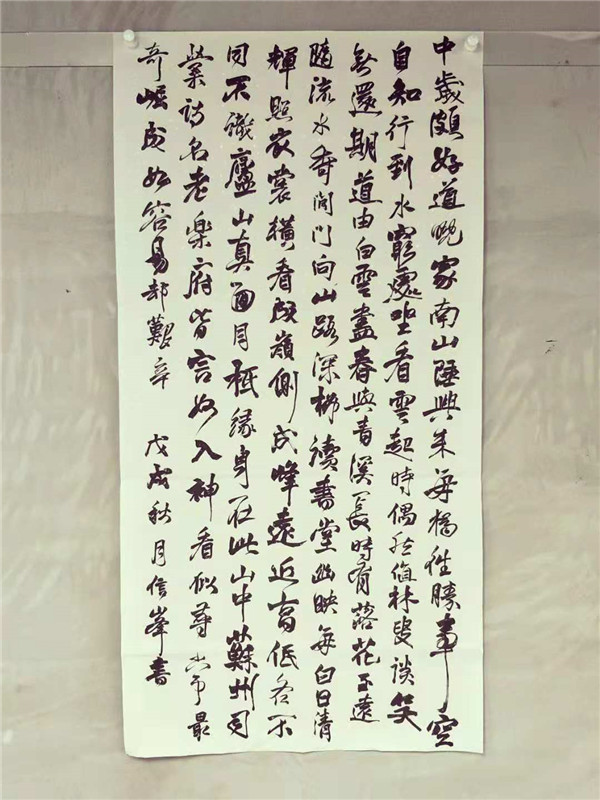 中歲頗好道晚家南山陲興來每獨往勝事空
自知行到水窮處坐看雲起時偶然值林叟談笑
無還期道由白雲盡春與青溪長時有落花至遠
隨流水香閑門向山路深柳讀書堂幽映每白日清
輝照衣裳橫看成嶺側成峰遠近高低各不
同不識廬山真面目祗緣身在此山中蘇州司
業詩名老樂府皆言妙入神看似尋常最
奇崛成如容易却艱辛 戊戌秋月信峯書